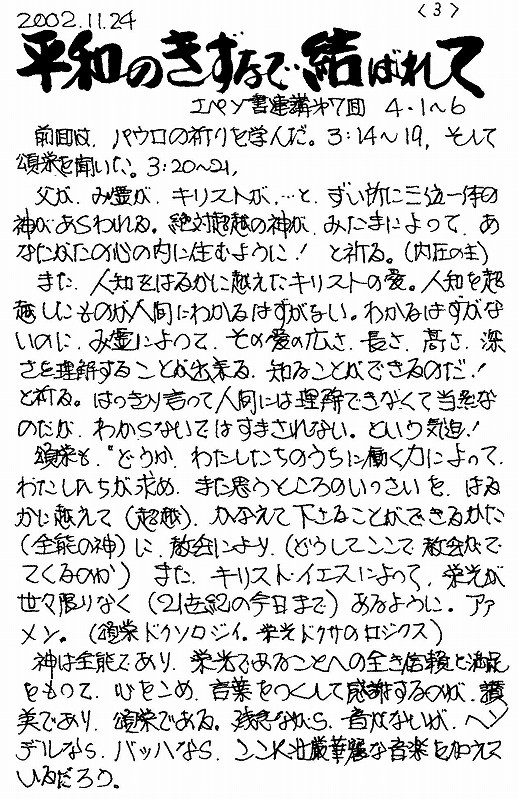 2002.11.24
<3>
平和のきずなで結ばれて
エペソ書連講第7回 4・1~6
前回は、パウロの祈りを学んだ。3:14~19、そして
頌栄を聞いた。3:20~21、
父が、み霊が、キリストが、…と、ずい所に三位一体の
神があらわれる。絶対超越の神が、みたまによって、あ
なたがたの心の内に住むように! と祈る。(内在の主)
また、人知をはるかに越えたキリストの愛。人知を超
越したものが人間にわかるはずがない。わかるはずがな
いのに、み霊によって、その愛の広さ、長さ、高さ、深
さを理解することが出来る、知ることができるのだ!
と祈る。はっきり言って人間には理解できなくて当然な
のだが、わからないではすまされない。という気迫!
頌栄も、"どうか、わたしたちのうちに働く力によって、
わたしたちが求め、また思うところのいっさいを、はる
かに越えて(超越)、かなえて下さることができるかた
(全能の神)に、教会により、(どうしてここで教会がで
てくるのか) また、キリスト・イエスによって、栄光が
世々限りなく(21世紀の今日まで)あるように。アァ
メン。(頌栄ドクソロジィ。栄光ドクサのロジクス)
神は全能であり、栄光であることへの全き信頼と満足
をもって、心をこめ、言葉をつくして感謝するのが、讃
美であり、頌栄である。残念ながら、音がないが、ヘン
デルなら、バッハなら、ここに壮厳華麗な音楽を加えて
いるだろう。